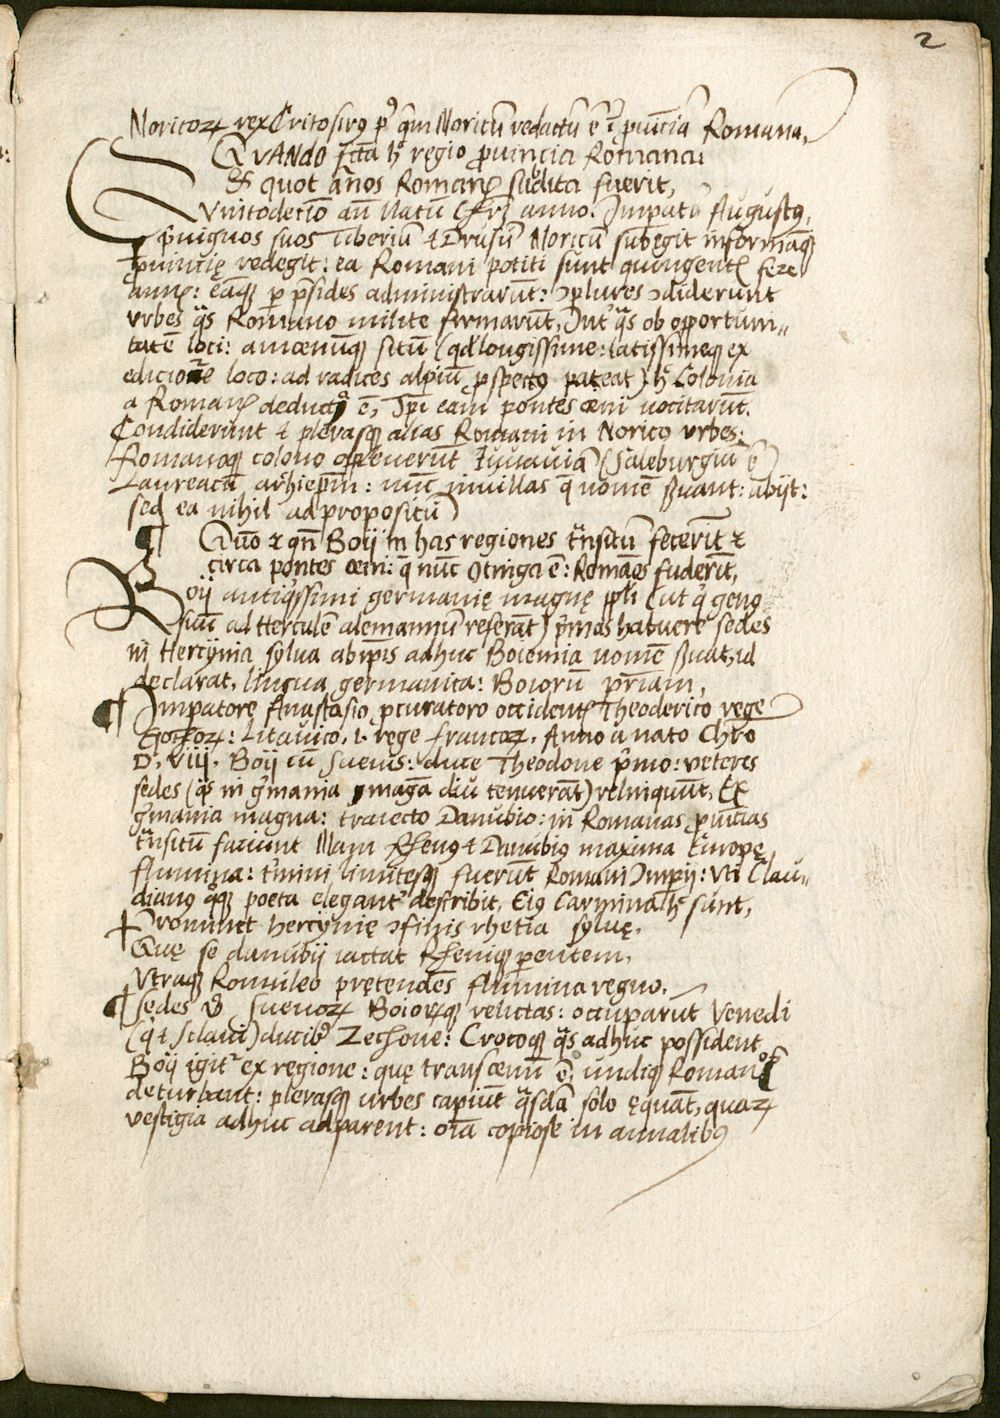 2
Noricoꝝ rex Critosirꝰ pꝰ q̄m Noricū redactū ē ī ꝓuīciā Romanā.
QVANDO fc̄ta hͨ regio ꝓuincia Romana:
Et quot an̄os Romanꝭ subdita fuerit,
an̄ Natū Chrꝝ anno. Impator Augustꝰ,
p̄uignos suos Tiberiū ⁊ Drusū Noricū subegit in formāqꝫ
ꝓuincię redegit: ea Romani potiti sunt quingentꝭ fere
annꝭ: eāqꝫ ꝑ p̄sides administrarūt: ꝯplures ꝯdiderunt
vrbes q̄s Romano milite firmarūt, Int̄ q̄s ob opportuni„
tatē loci: amœnūqꝫ sitū (qd̓ longissime: latissimeqꝫ ex
edictiore loco: ad radices alpiū ꝓspectꝰ pateat) hͨ Colonia
a Romanꝭ deducta ē, Ip̄i eam pontes œni uocitarūt.
Condiderunt ⁊ plerasqꝫ alias Romani in Norico vrbes:
Romanoqꝫ colono opleuerūt Iuuauiā (Saleburgiū ē)
Laureacū arhiep̄m: nūc in uillas q̄ nomē ẜuant: abijt:
sed ea nihil ad propositū)
¶ Quo ⁊ qn̄ Boij in has regiones t̄nsitū fecerīt ⁊
circa pontes œni: q̄ nūc Otinga ē: Romāos fuderīt,
Boij antiqͥssimi germanię magnę ppl̄i (ut qͥ genꝰ
suū ad Herculē alemannū referāt) p̄mas habuere sedes
in Hercynia sylua ab ip̄is adhuc Boiemia nomē ẜuāt, id
declarat, lingua germanica: Boiorū pr̄iam,
¶ Impatore Anastasio ꝓcuratore occidentꝭ Theoderico rege
Gothoꝝ: Litauico .i. rege francoꝝ. Anno a nato Chr̄o
D. Viij. Boij cū Sueuis: duce Theodone p̄mo: veteres
sedes (q̄s in g̓mania magā diu tenuerāt) relinquūt, Ex
g̓mania magna: traiecto Danubio: in Romanas ꝓuīcias
t̄nsitū faciunt Nam Rhenꝰ ⁊ Danubiꝰ maxima Europę
flumina: t̓mini limitesqꝫ fuerūt Romani Imp̄ij: Vti Clau„
dianꝰ qͦqꝫ poeta elegant̓ describit, Eiꝰ Carmina hͨ sunt,
Prominet hercynię ꝯfinis rhetia sylvę,
Quę se danubij iactat Rheniqꝫ parentem,
Vtraqꝫ Romuleo prętendēs flumina regno.
¶ Sedes ꝟ Sueuoꝝ Boioꝝqꝫ relictas: occuparūt Venedi
(q̓ ⁊ Sclaui) ducibꝰ Zechone: Crocoqꝫ q̄s adhuc possident
Boij igit̓ ex regione: quę trans œnū ē, undiqꝫ Romanos
deturbant: plerasqꝫ urbes capiūt q̄sdā solo ęquāt, quaꝝ
vestigia adhuc adparent: oīa copiose in annalibꝰ